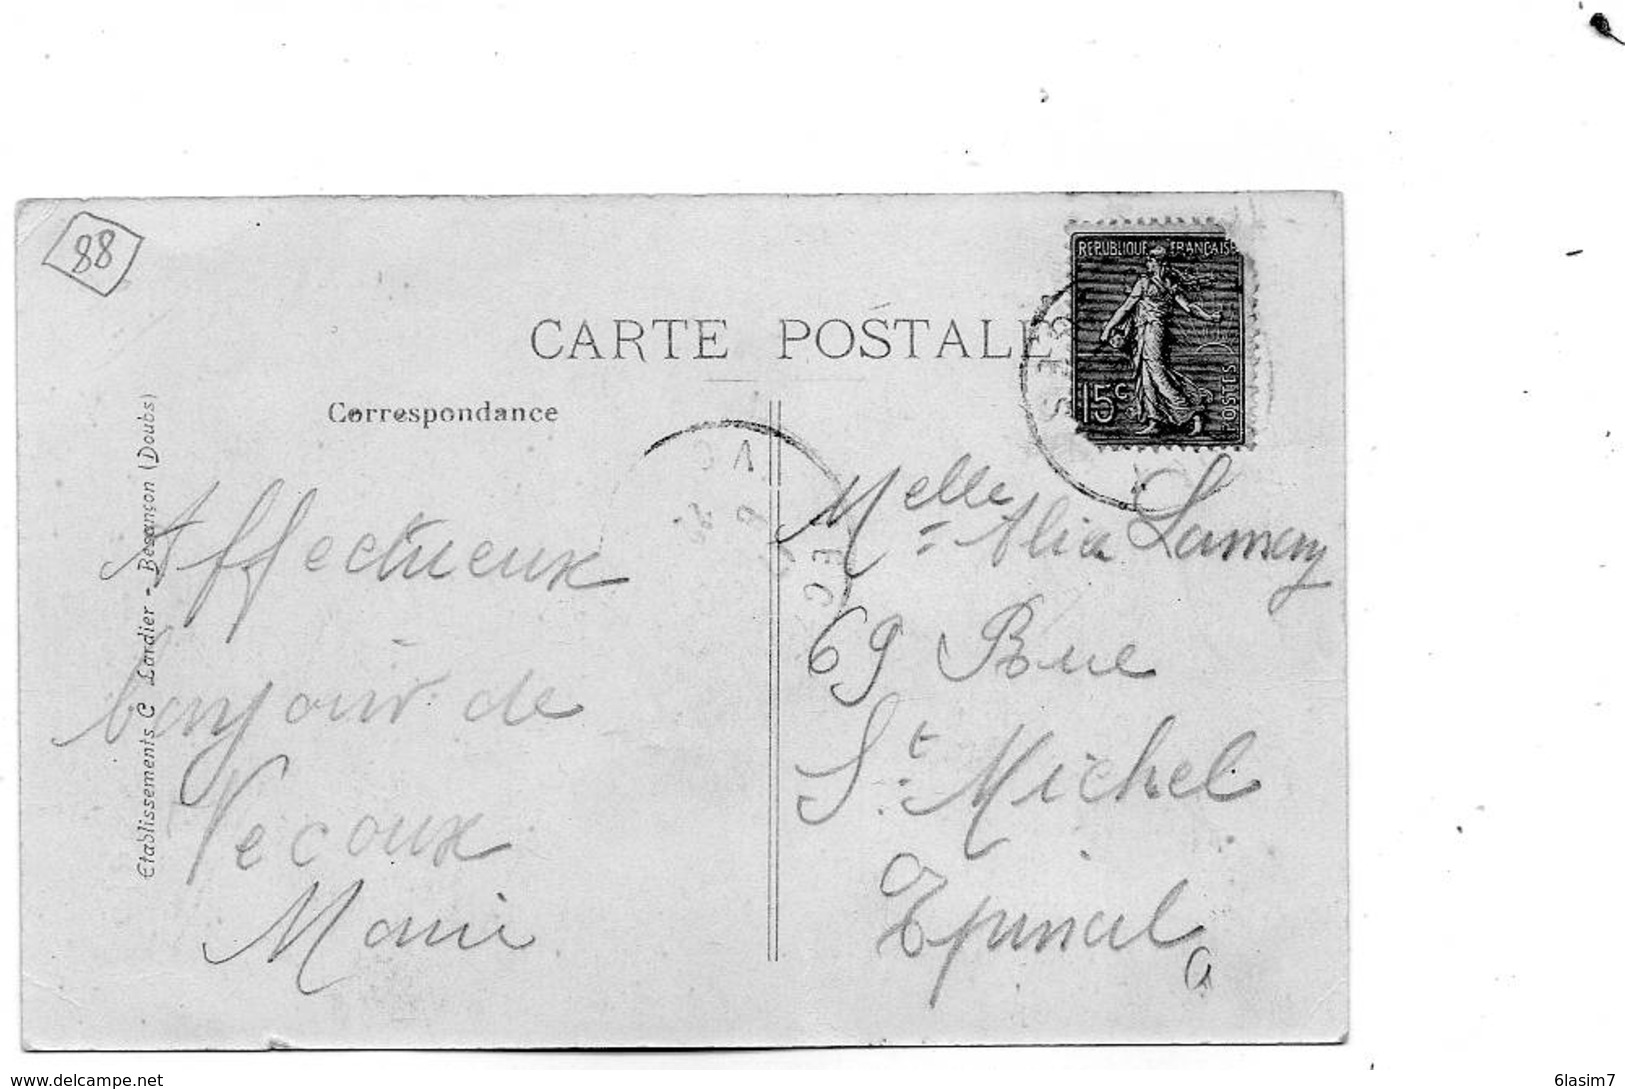 88
REPUBLIQUE FRANÇAISE
15c
POSTES
CARTE POSTALE
Correspondance
Etablissements C Lardier - Besançon (Doubs)
Affectueux
bonjour de
Vecoux
Marie
Melle Alice Lamay
69 Rue
St Michel
Epinal
www.delcampe.net
6lasim7